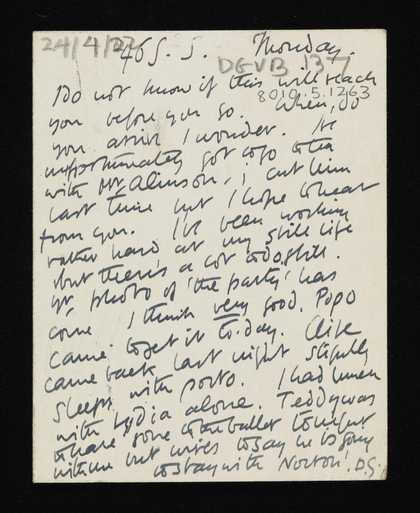 24/4/22
46 G.S. Monday.
DGVB 137
I Do not know if this will reach
8010.5.1263
you before you go. When, do
you arrive I wonder. I've
unfortunately got to go to tea
with Mr Alinson, I cut him
last time but I hope to hear
from you. I've been working
rather hard at my still life
but there's a lot to do still.
Yr photo of 'the party' has
come I think very good. Popo
came to get it to-day. Alix
came back last night slightly
sleeps with porto. I had lunch
with Lydia alone. Teddy was
to have gone to the ballet tonight
with me but wires to say he is going
to stay with Norton! D.G.